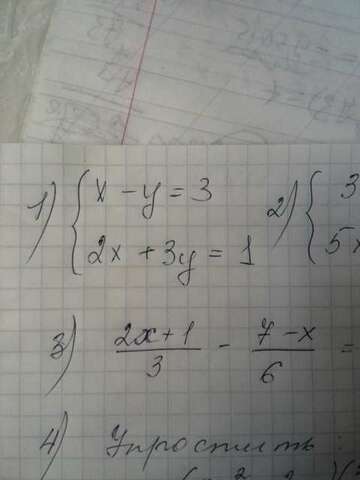 1) { x - y = 3
2x + 3y = 1
2) { 3
5x
3) (2x+1)/3 - (7-x)/6 =
4) Упростить: